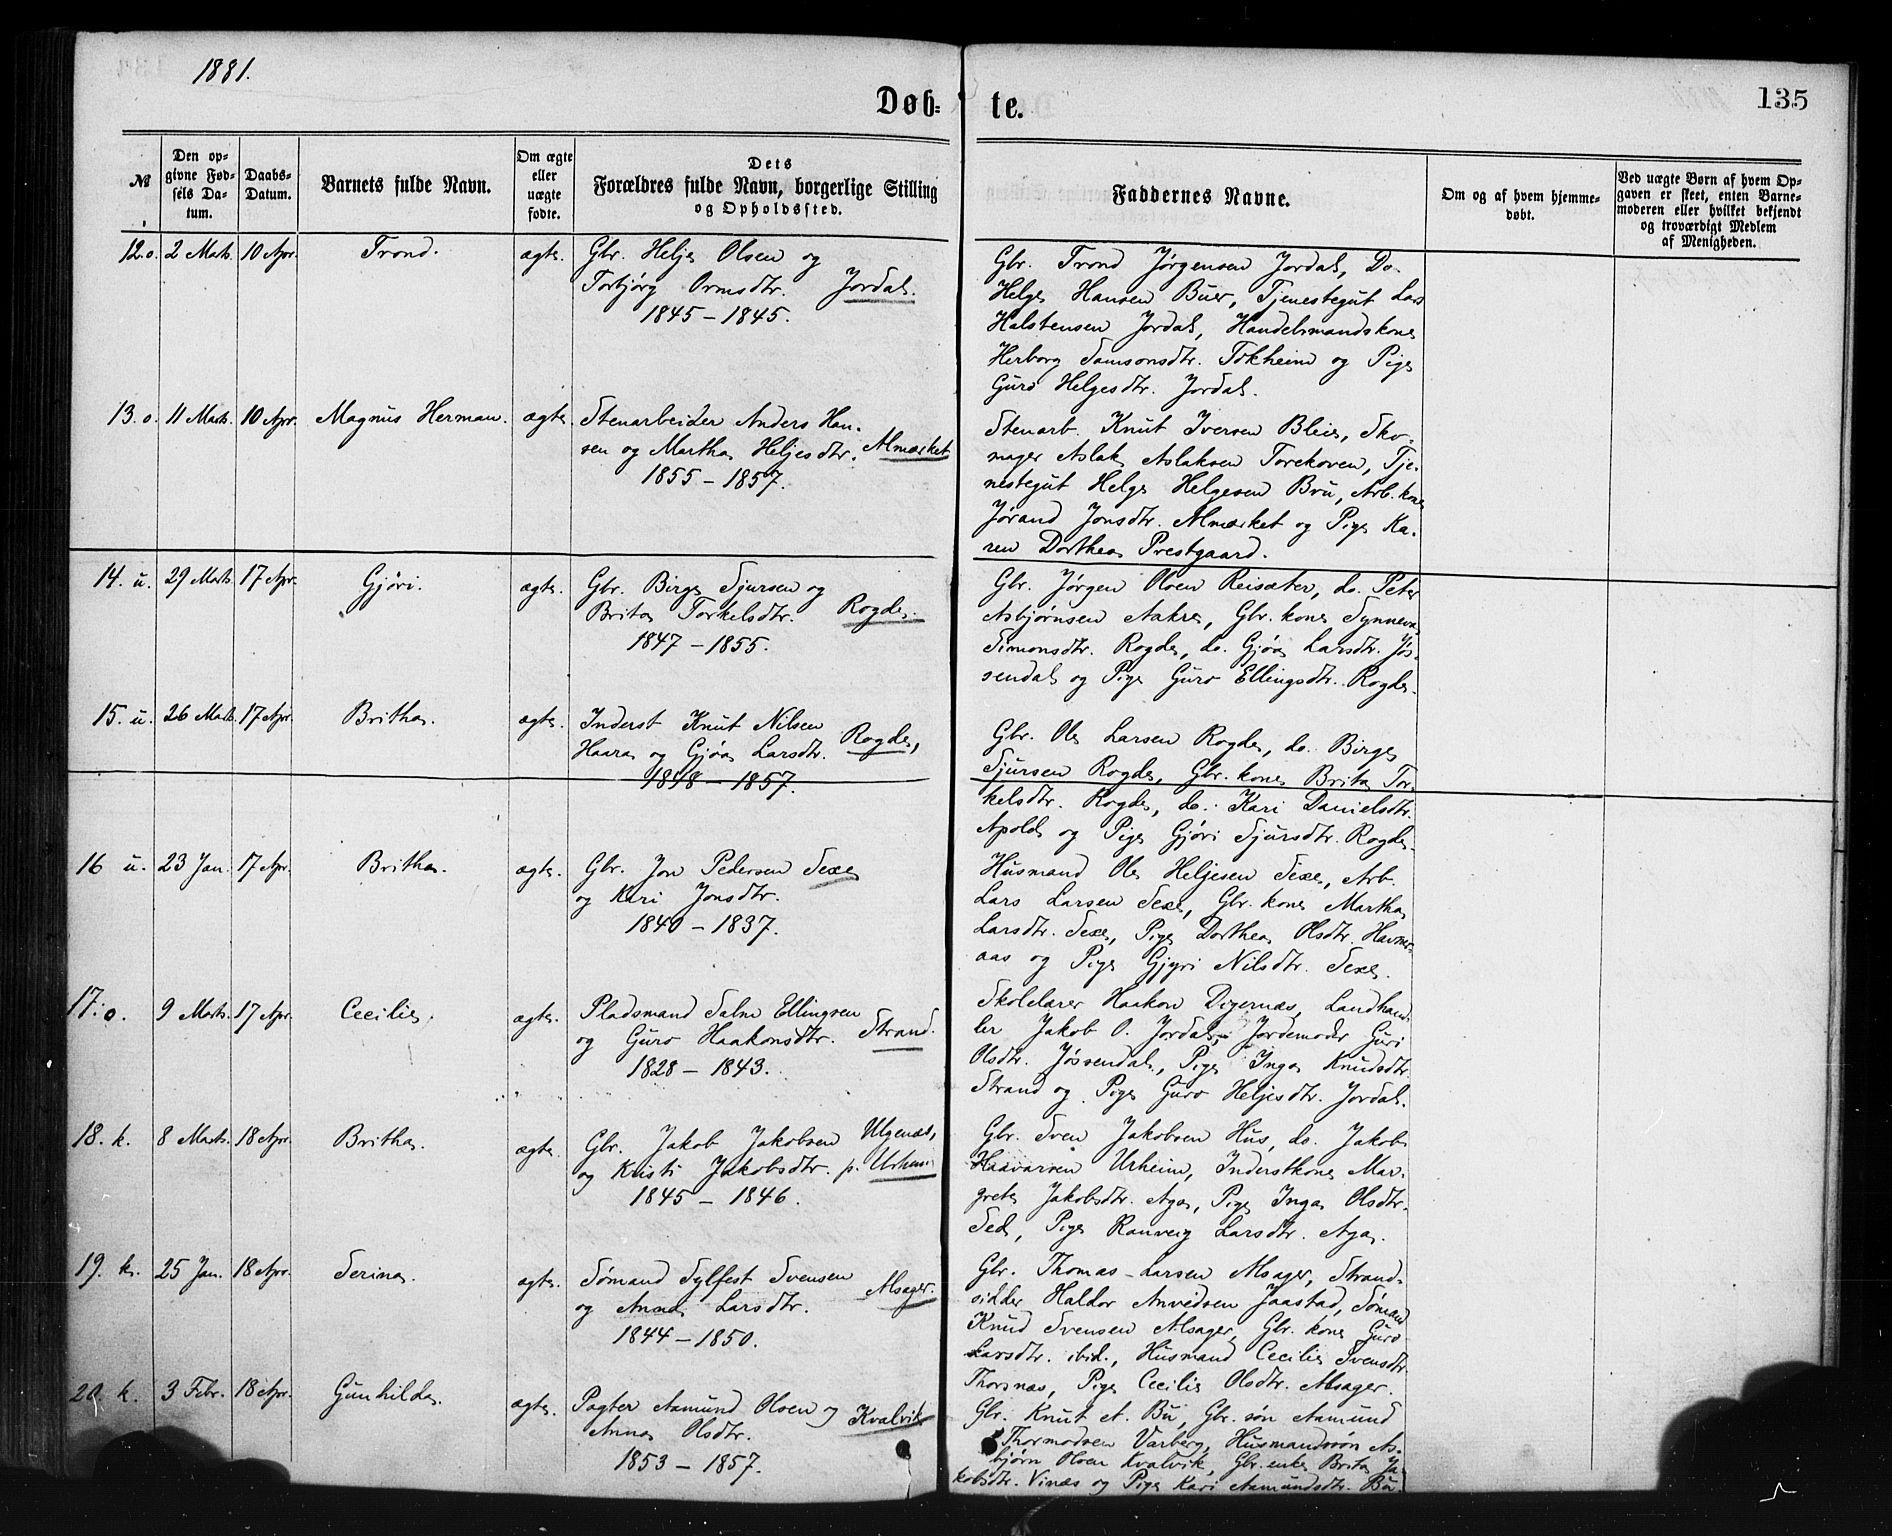 1881.
Døb-
te.
135
№
Den op-
givne Fød-
sels Da-
tum.
Daabs-
Datum.
Barnets fulde Navn.
Om ægte
eller
uægte
fødte.
Dets
Forældres fulde Navn, borgerlige Stilling
og Opholdssted.
Faddernes Navne.
Om og af hvem hjemme-
døbt.
Ved uægte Børn af hvem Op-
gaven er skeet, enten Barne-
moderen eller hvilket bekjendt
og troværdigt Medlem
af Menigheden.
12. o. 2 Marts. 10 Apr. Trond. ægte. Gbr. Helje Olsen og
Torbjørg Ormsdtr. Jordal.
1845 - 1845.
Gbr. Trond Jørgensen Jordal, Do.
Helge Hansen Buer, Tjenestegut Lars
Halstensen Jordal, Handelsmandskone
Herborg Samsonsdtr. Tokheim og Pige
Guro Helgesdtr. Jordal.
13. o. 11 Marts. 10 Apr. Magnus Herman. ægte. Stenarbeider Anders Han-
sen og Martha Heljesdtr. Almærket
1855 - 1857.
Stenarb. Knut Iversen Bleie, Sko-
mager Aslak Aslaksen Torekoven, Tje-
nestegut Helge Helgesen Bru, Arb. kone
Jørand Jonsdtr. Almærket og Pige Ka-
ren Dorthea Prestgaard.
14. u. 29 Marts. 17 Apr. Gjøri. ægte. Gbr. Birge Sjursen og
Brita Torkelsdtr. Rogde.
1847 - 1855.
Gbr. Jørgen Olsen Reisæter, do. Peter
Asbjørnsen Aakre, Gbr. kone Synneva
Simonsdtr. Rogde, do. Gjøa Larsdtr. Jøs-
sendal og Pige Guro Ellingsdtr. Rogde.
15. u. 26 Marts. 17 Apr. Britha. ægte. Inderst Knut Nilsen
Haara og Gjøa Larsdtr. Rogde,
1848 - 1857.
Gbr. Ole Larsen Rogde, do. Birge
Sjursen Rogde, Gbr. kone Brita Tor-
kelsdtr. Rogde, do. Kari Danielsdtr.
Apold og Pige Gjøri Sjursdtr. Rogde.
16 u. 23 Jan. 17 Apr. Britha. ægte. Gbr. Jon Pedersen Sexe
og Kari Jonsdtr.
1840 - 1837.
Husmand Ole Heljesen Sexe, Arb.
Lars Larsen Sexe, Gbr. kone Martha
Larsdtr. Sexe, Pige Dorthea Olsdtr. Havner-
aas og Pige Gjyri Nilsdtr. Sexe.
17. o. 9 Marts. 17 Apr. Cecilie. ægte. Pladsmand Salm Ellingsen
og Guro Haakonsdtr. Strand.
1828 - 1843.
Skolelærer Haakon Digernæs, Landhand-
ler Jakob O. Jordal, Jordemoder Guri
Olsdtr. Jøssendal, Pige Inga Knudsdtr.
Strand og Pige Guro Heljesdtr. Jordal.
18. k. 8 Marts. 18 Apr. Britha. ægte. Gbr. Jakob Jakobsen Ulgenæs,
og Kristi Jakobsdtr. p. Urheim
1845 - 1846.
Gbr. Sven Jakobsen Hus, do. Jakob
Haavarsen Urheim, Inderstkone Mar-
grete Jakobsdtr. Aga, Pige Inga Olsdtr.
Sed, Pige Ranveig Larsdtr. Aga.
19. k. 25 Jan. 18 Apr. Serina. ægte. Sømand Sylfest Svensen
og Anna Larsdtr. Alsager.
1844 - 1850.
Gbr. Thomas Larsen Alsager, Strand-
sidder Haldor Anvedsen Jaastad, Sømand
Knud Svensen Alsager, Gbr. kone Guro
Larsdtr. ibid., Husmand Cecilie Svensdtr.
Thorsnæs, Pige Cecilie Olsdtr. Alsager.
20. k. 3 Febr. 18 Apr. Gunhilda. ægte. Pagter Aamund Olsen og Kvalvik
Anna Olsdtr.
1853 - 1857.
Gbr. Knut A. Bu, Gbr. søn Aamund
Thormodsen Varberg, Husmandssøn As-
bjørn Olsen Kvalvik, Gbr. enke Brita Ja-
kobsdtr. Vinæs og Pige Kari Aamundsdtr. Bu.